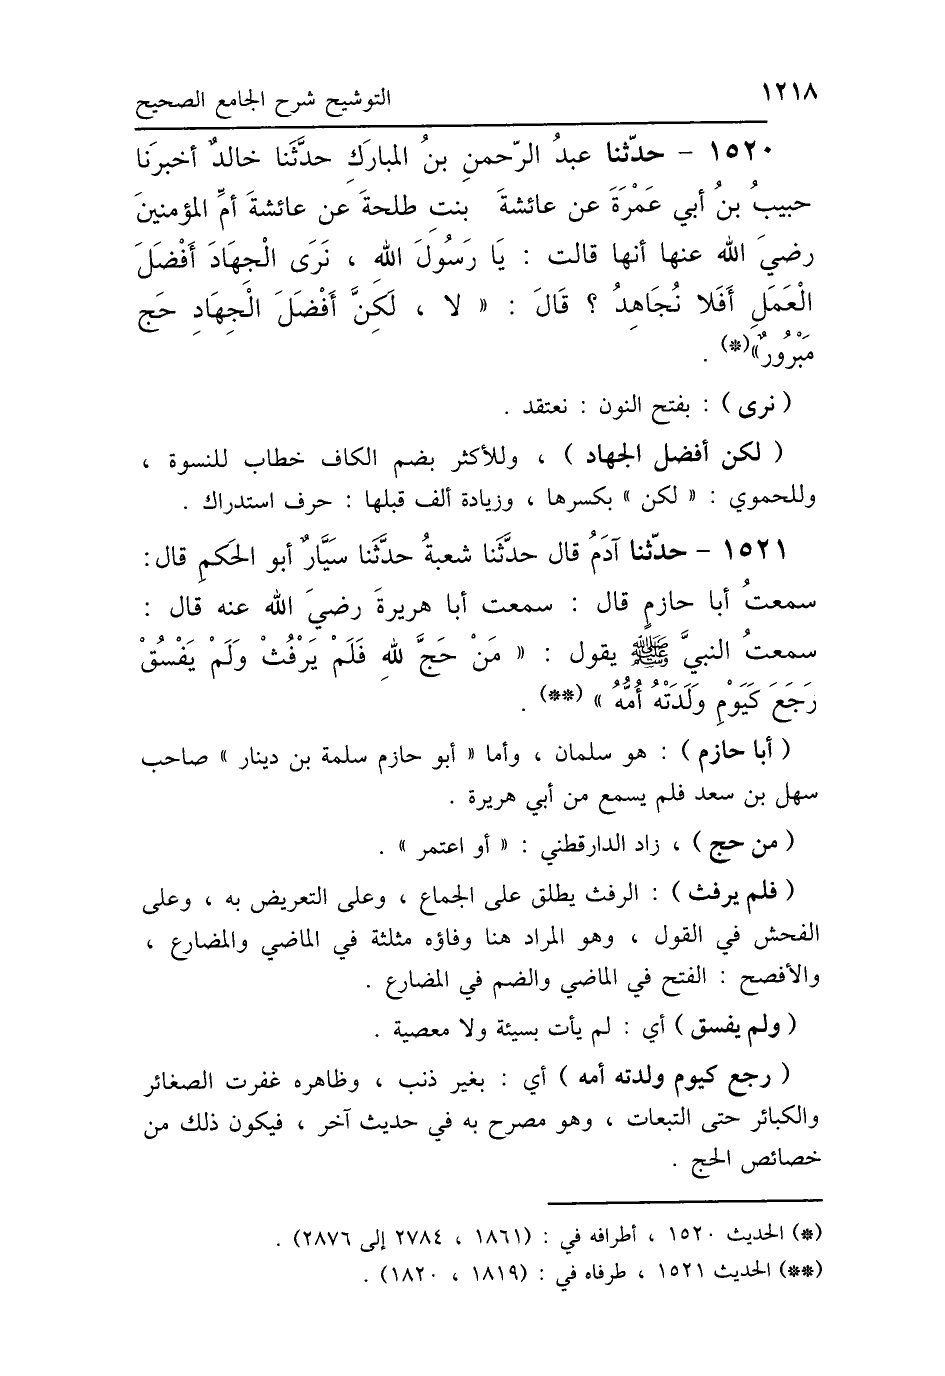 ١٢١٨
التوشيح شرح الجامع الصحيح
١٥٢٠ - حدّثنا عبدُ الرّحمنِ بنُ المبارَكِ حدَّثَنا خالدٌ أخبرَنا
حبيبُ بنُ أبي عَمْرَةَ عن عائشةَ بنتِ طلحةَ عن عائشةَ أمِّ المؤمنينَ
رضيَ الله عنها أنها قالت : يَا رَسُولَ اللهِ ، نَرَى الْجِهَادَ أَفْضَلَ
الْعَمَلِ أَفَلا نُجَاهِدُ ؟ قَالَ : « لا ، لَكِنَّ أَفْضَلَ الْجِهَادِ حَج
مَبْرُورٌ»(*) .
( نرى ) : بفتح النون : نعتقد .
( لكن أفضل الجهاد ) ، وللأكثر بضم الكاف خطاب للنسوة ،
وللحموي : « لكن » بكسرها ، وزيادة ألف قبلها : حرف استدراك .
١٥٢١ - حدّثنا آدَمُ قال حدَّثَنا شعبةُ حدَّثَنا سَيَّارٌ أبو الحَكمِ قال:
سمعتُ أبا حازمٍ قال : سمعت أبا هريرةَ رضيَ الله عنه قال :
سمعتُ النبيَّ ﷺ يقول : « مَنْ حَجَّ للهِ فَلَمْ يَرْفُثْ وَلَمْ يَفْسُقْ
رَجَعَ كَيَوْمِ وَلَدَتْهُ أُمُّهُ » (**) .
( أبا حازم ) : هو سلمان ، وأما « أبو حازم سلمة بن دينار » صاحب
سهل بن سعد فلم يسمع من أبي هريرة .
( من حج ) ، زاد الدارقطني : « أو اعتمر » .
( فلم يرفث ) : الرفث يطلق على الجماع ، وعلى التعريض به ، وعلى
الفحش في القول ، وهو المراد هنا وفاؤه مثلثة في الماضي والمضارع ،
والأفصح : الفتح في الماضي والضم في المضارع .
( ولم يفسق ) أي : لم يأت بسيئة ولا معصية .
( رجع كيوم ولدته أمه ) أي : بغير ذنب ، وظاهره غفرت الصغائر
والكبائر حتى التبعات ، وهو مصرح به في حديث آخر ، فيكون ذلك من
خصائص الحج .
(*) الحديث ١٥٢٠ ، أطرافه في : (١٨٦١ ، ٢٧٨٤ إلى ٢٨٧٦) .
(**) الحديث ١٥٢١ ، طرفاه في : (١٨١٩ ، ١٨٢٠) .